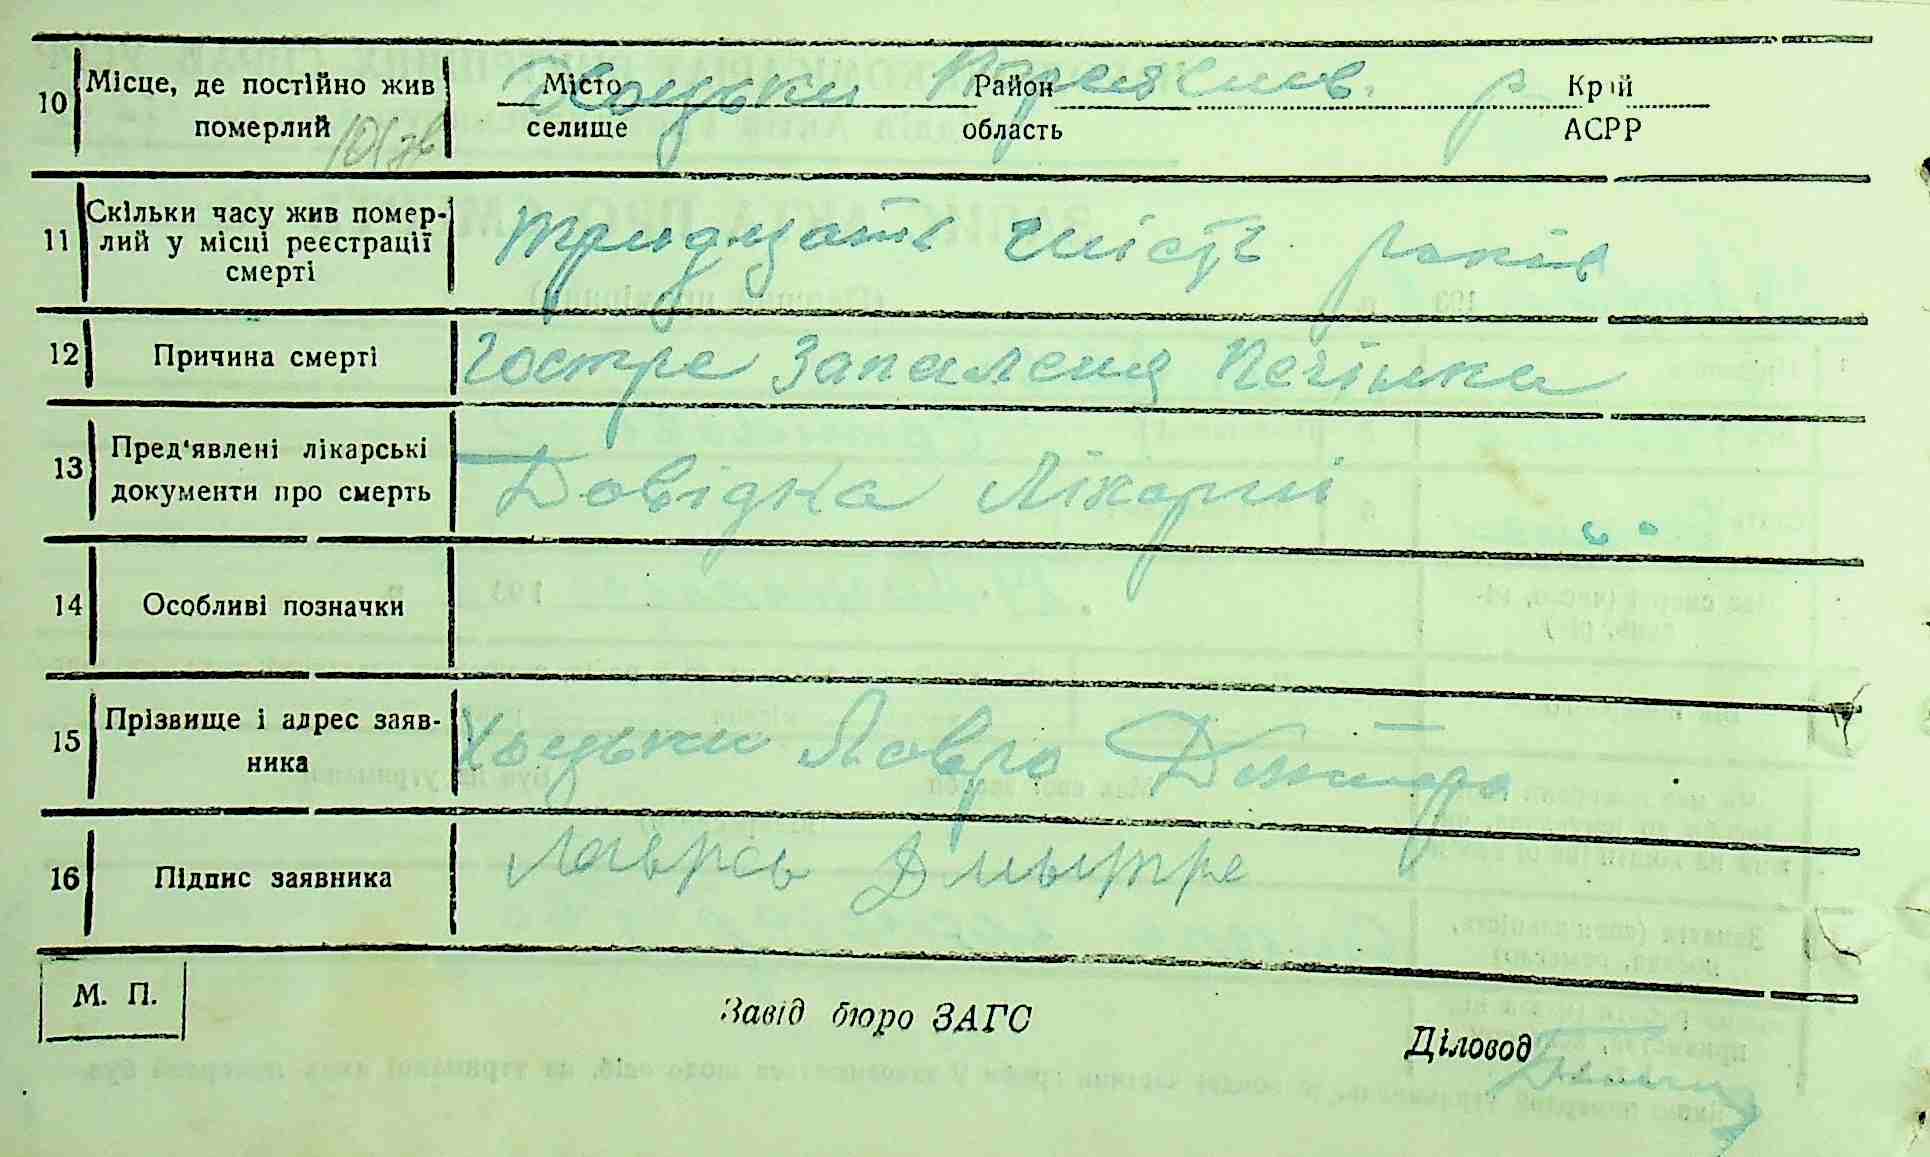 10 Місце, де постійно жив Місто Хоцьки Район Переяслив. р Край
померлий селище область АСРР
11 Скільки часу жив помер-
лий у місці реєстрації
смерті
тридцять шість років
12 Причина смерті Гостре запаленя печінка
13 Пред'явлені лікарські
документи про смерть
Довідка Лікарні
14 Особливі позначки
15 Прізвище і адрес заяв-
ника
Хоцьки Лавро Дмитро
16 Підпис заявника Лаврсь Дмытре
М. П.
Завід бюро ЗАГС
Діловод